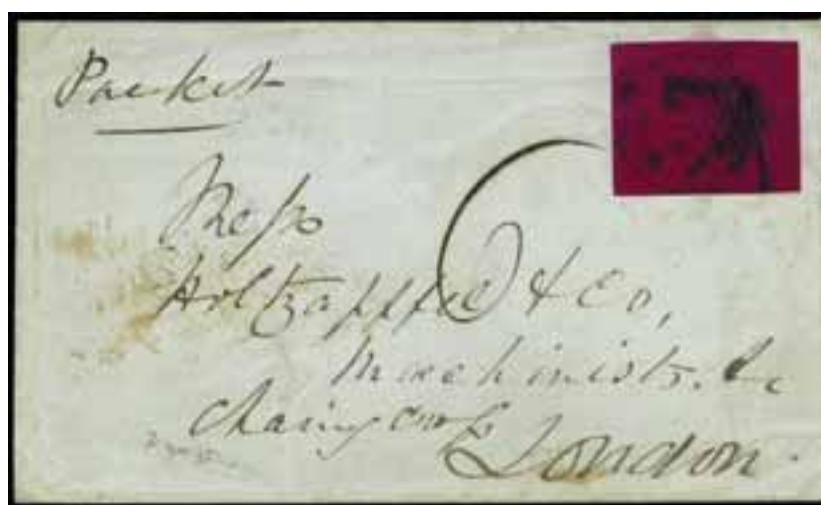 Packet
Mess
Holtzapffel & Co,
Machinists. &c
Charing Cross
London.